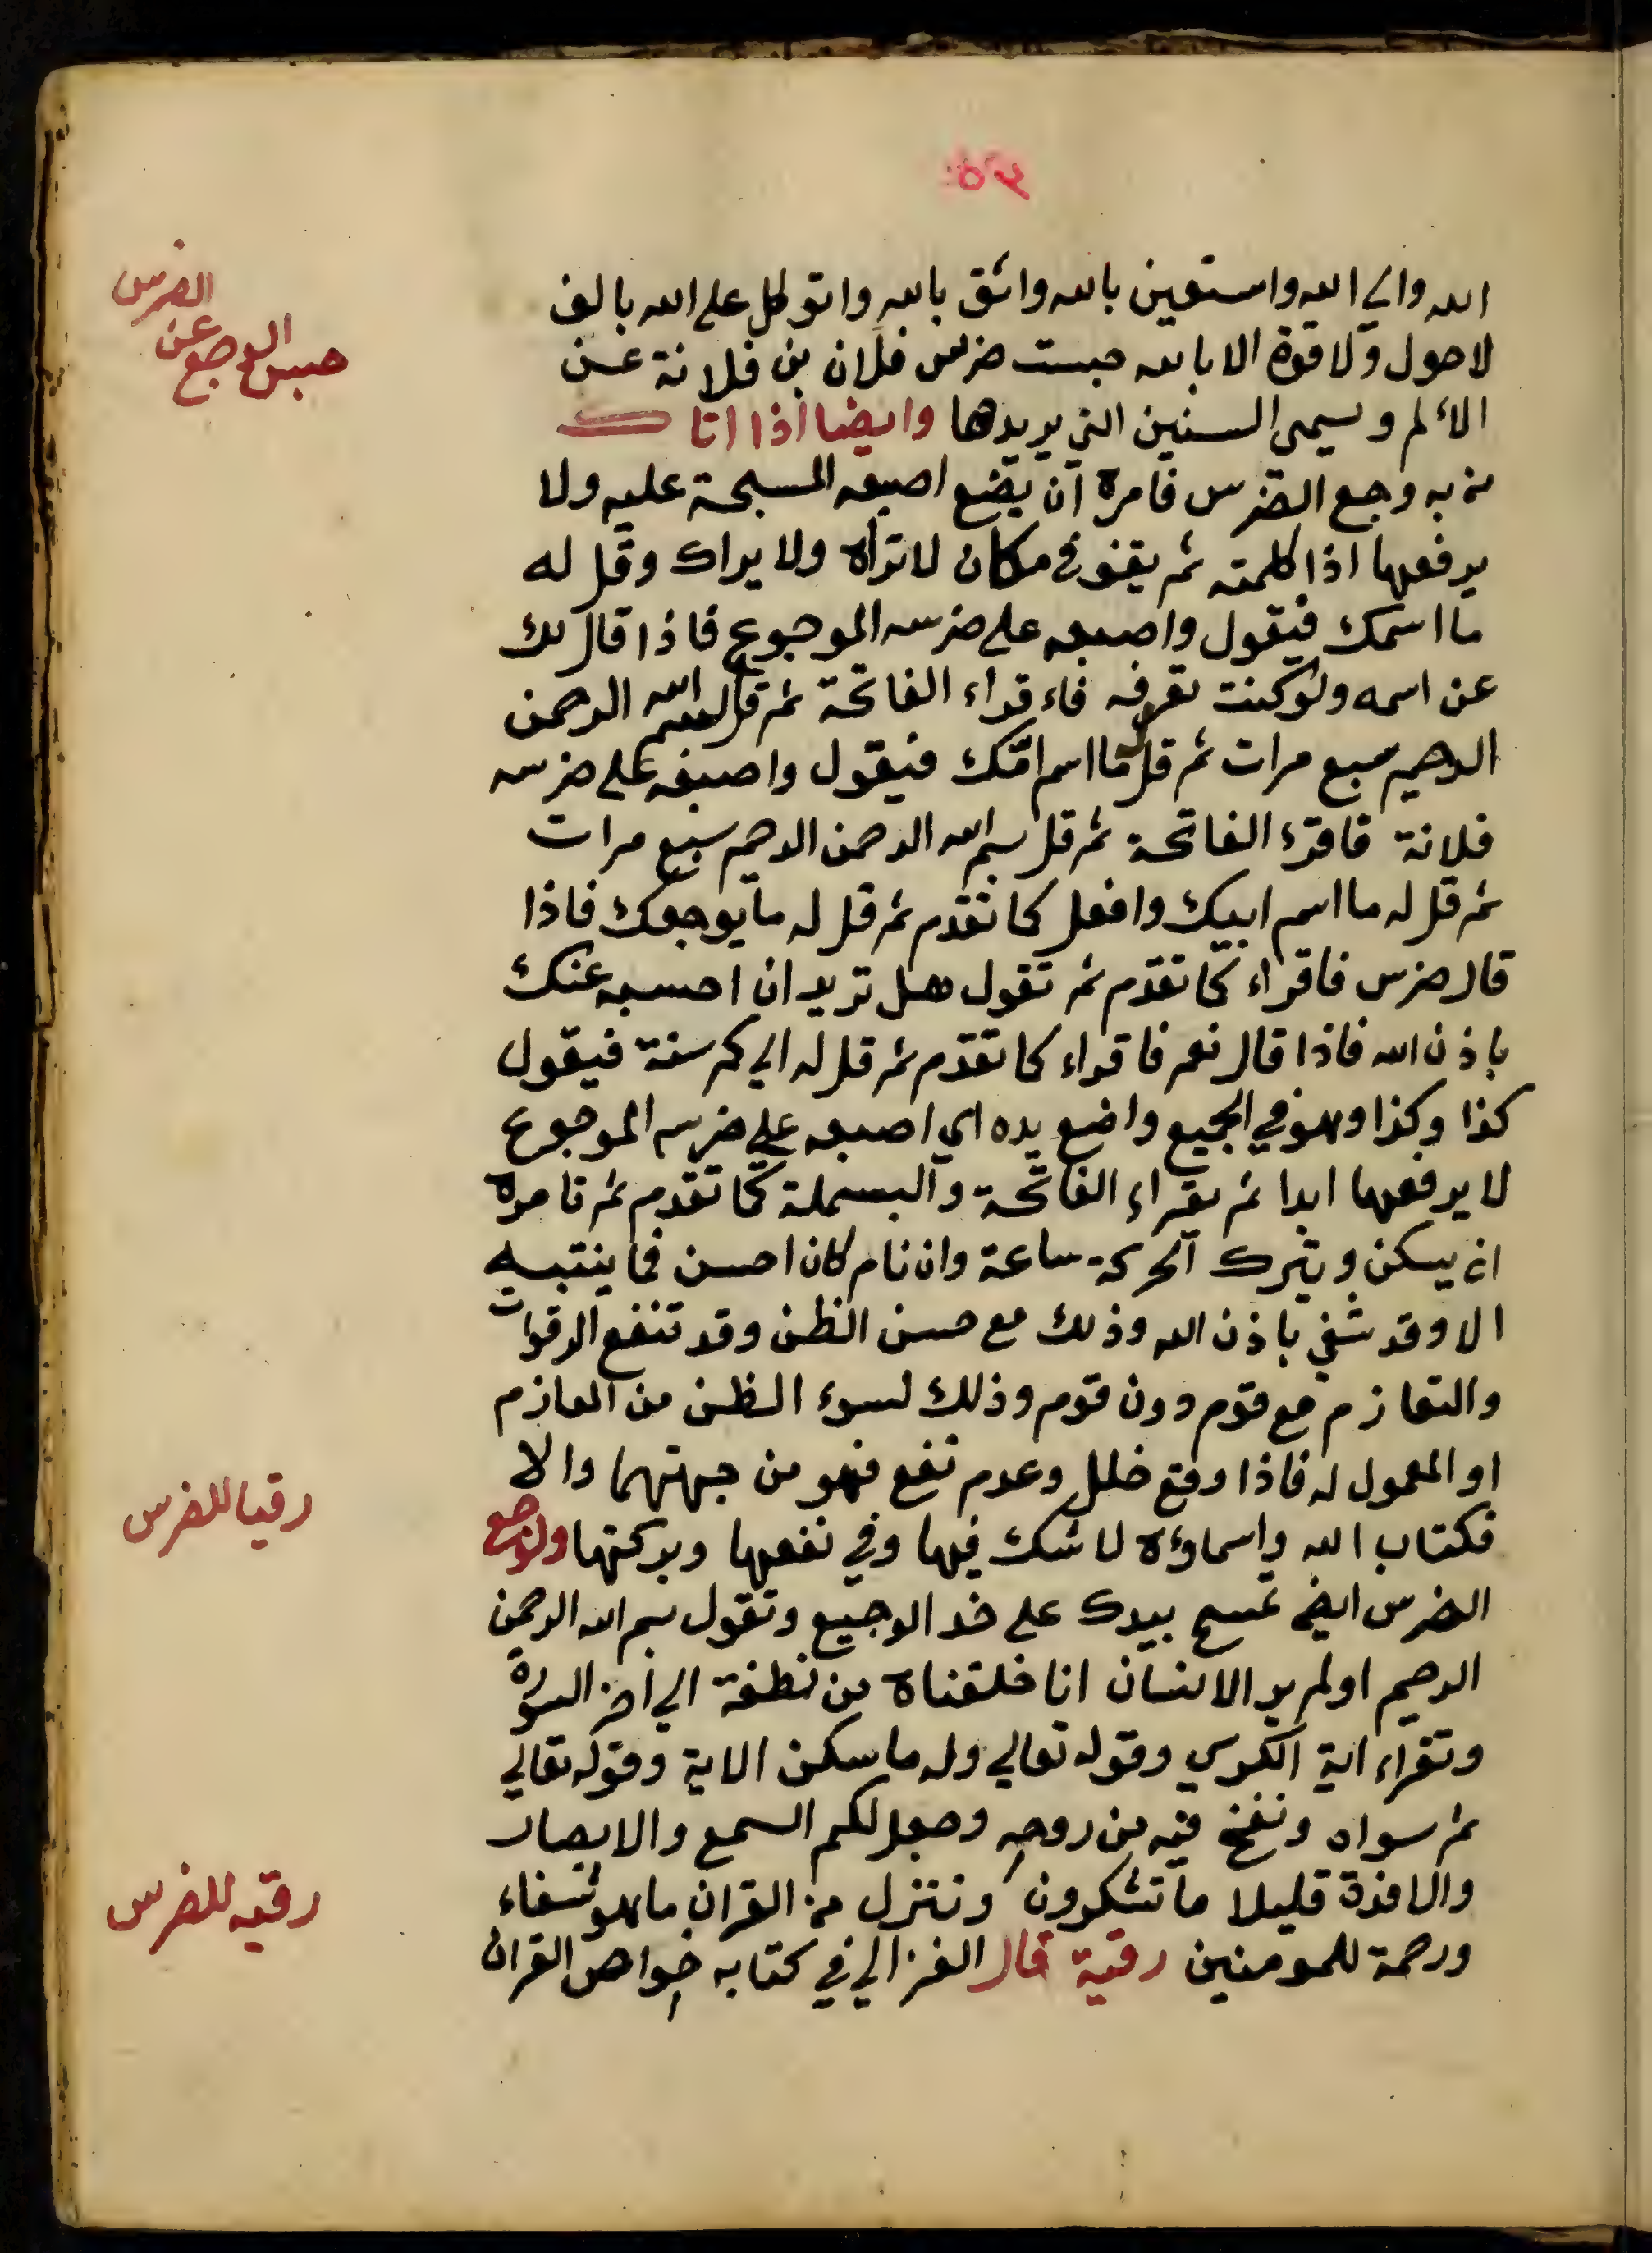 الله والي الله واستعين بالله واثق بالله واتوكل على الله بالف
لاحول ولا قوة الا بالله حبست ضرس فلان بن فلانة عن
الألم ويسمي السنين التي يريدها وايضا اذا اتاك
من به وجع الضرس فامره ان يضع اصبعه المسبحة عليه ولا
يرفعها اذا كلمته ثم يقف في مكان لا تراه ولا يراك وقل له
ما اسمك فيقول واصبعه على ضرسه الموجوع فاذا قال لك
عن اسمه ولو كنت تعرفه فاءقراء الفاتحة ثم قل بسم الله الرحمن
الرحيم سبع مرات ثم قل له ما اسم امّك فيقول واصبعه على ضرسه
فلانة فاقرء الفاتحة ثم قل بسم الله الرحمن الرحيم سبع مرات
ثم قل له ما اسم ابيك وافعل كما تقدم ثم قل له ما يوجعك فاذا
قال ضرس فاقراء كما تقدم ثم تقول هل تريد ان احبسه عنك
باذن الله فاذا قال نعم فاقراء كما تقدم ثم قل له الي كم سنة فيقول
كذا وكذا وهو في الجميع واضع يده اي اصبعه على ضرسه الموجوع
لا يرفعها ابدا ثم يقراء الفاتحة والبسملة كما تقدم ثم تامره
ان يسكن ويترك الحركة ساعة وان نام كان احسن فما ينتبه
الا وقد شفي باذن الله وذلك مع حسن الظن وقد تنفع الرقوات
والتعازم مع قوم دون قوم وذلك لسوء الظن من العازم
او المعمول له فاذا وقع خلل وعدم نفع فهو من جهتهما والا
فكتاب الله واسماؤه لا شك فيها وفي نفعها وبركتها ولوجع
الضرس ايضا تمسح بيدك على خد الوجيع وتقول بسم الله الرحمن
الرحيم اولم ير الانسان انا خلقناه من نطفة الي اخر السورة
وتقراء اية الكرسي وقوله تعالي وله ما سكن الاية وقوله تعالي
ثم سواه ونفخ فيه من روحه وجعل لكم السمع والابصار
والافدة قليلا ما تشكرون وننزل من القران ما هو شفاء
ورحمة للمومنين رقية قال الغزالي في كتابه خواص القران
حبس الوجع عن
الضرس
رقيا للضرس
رقيه للضرس